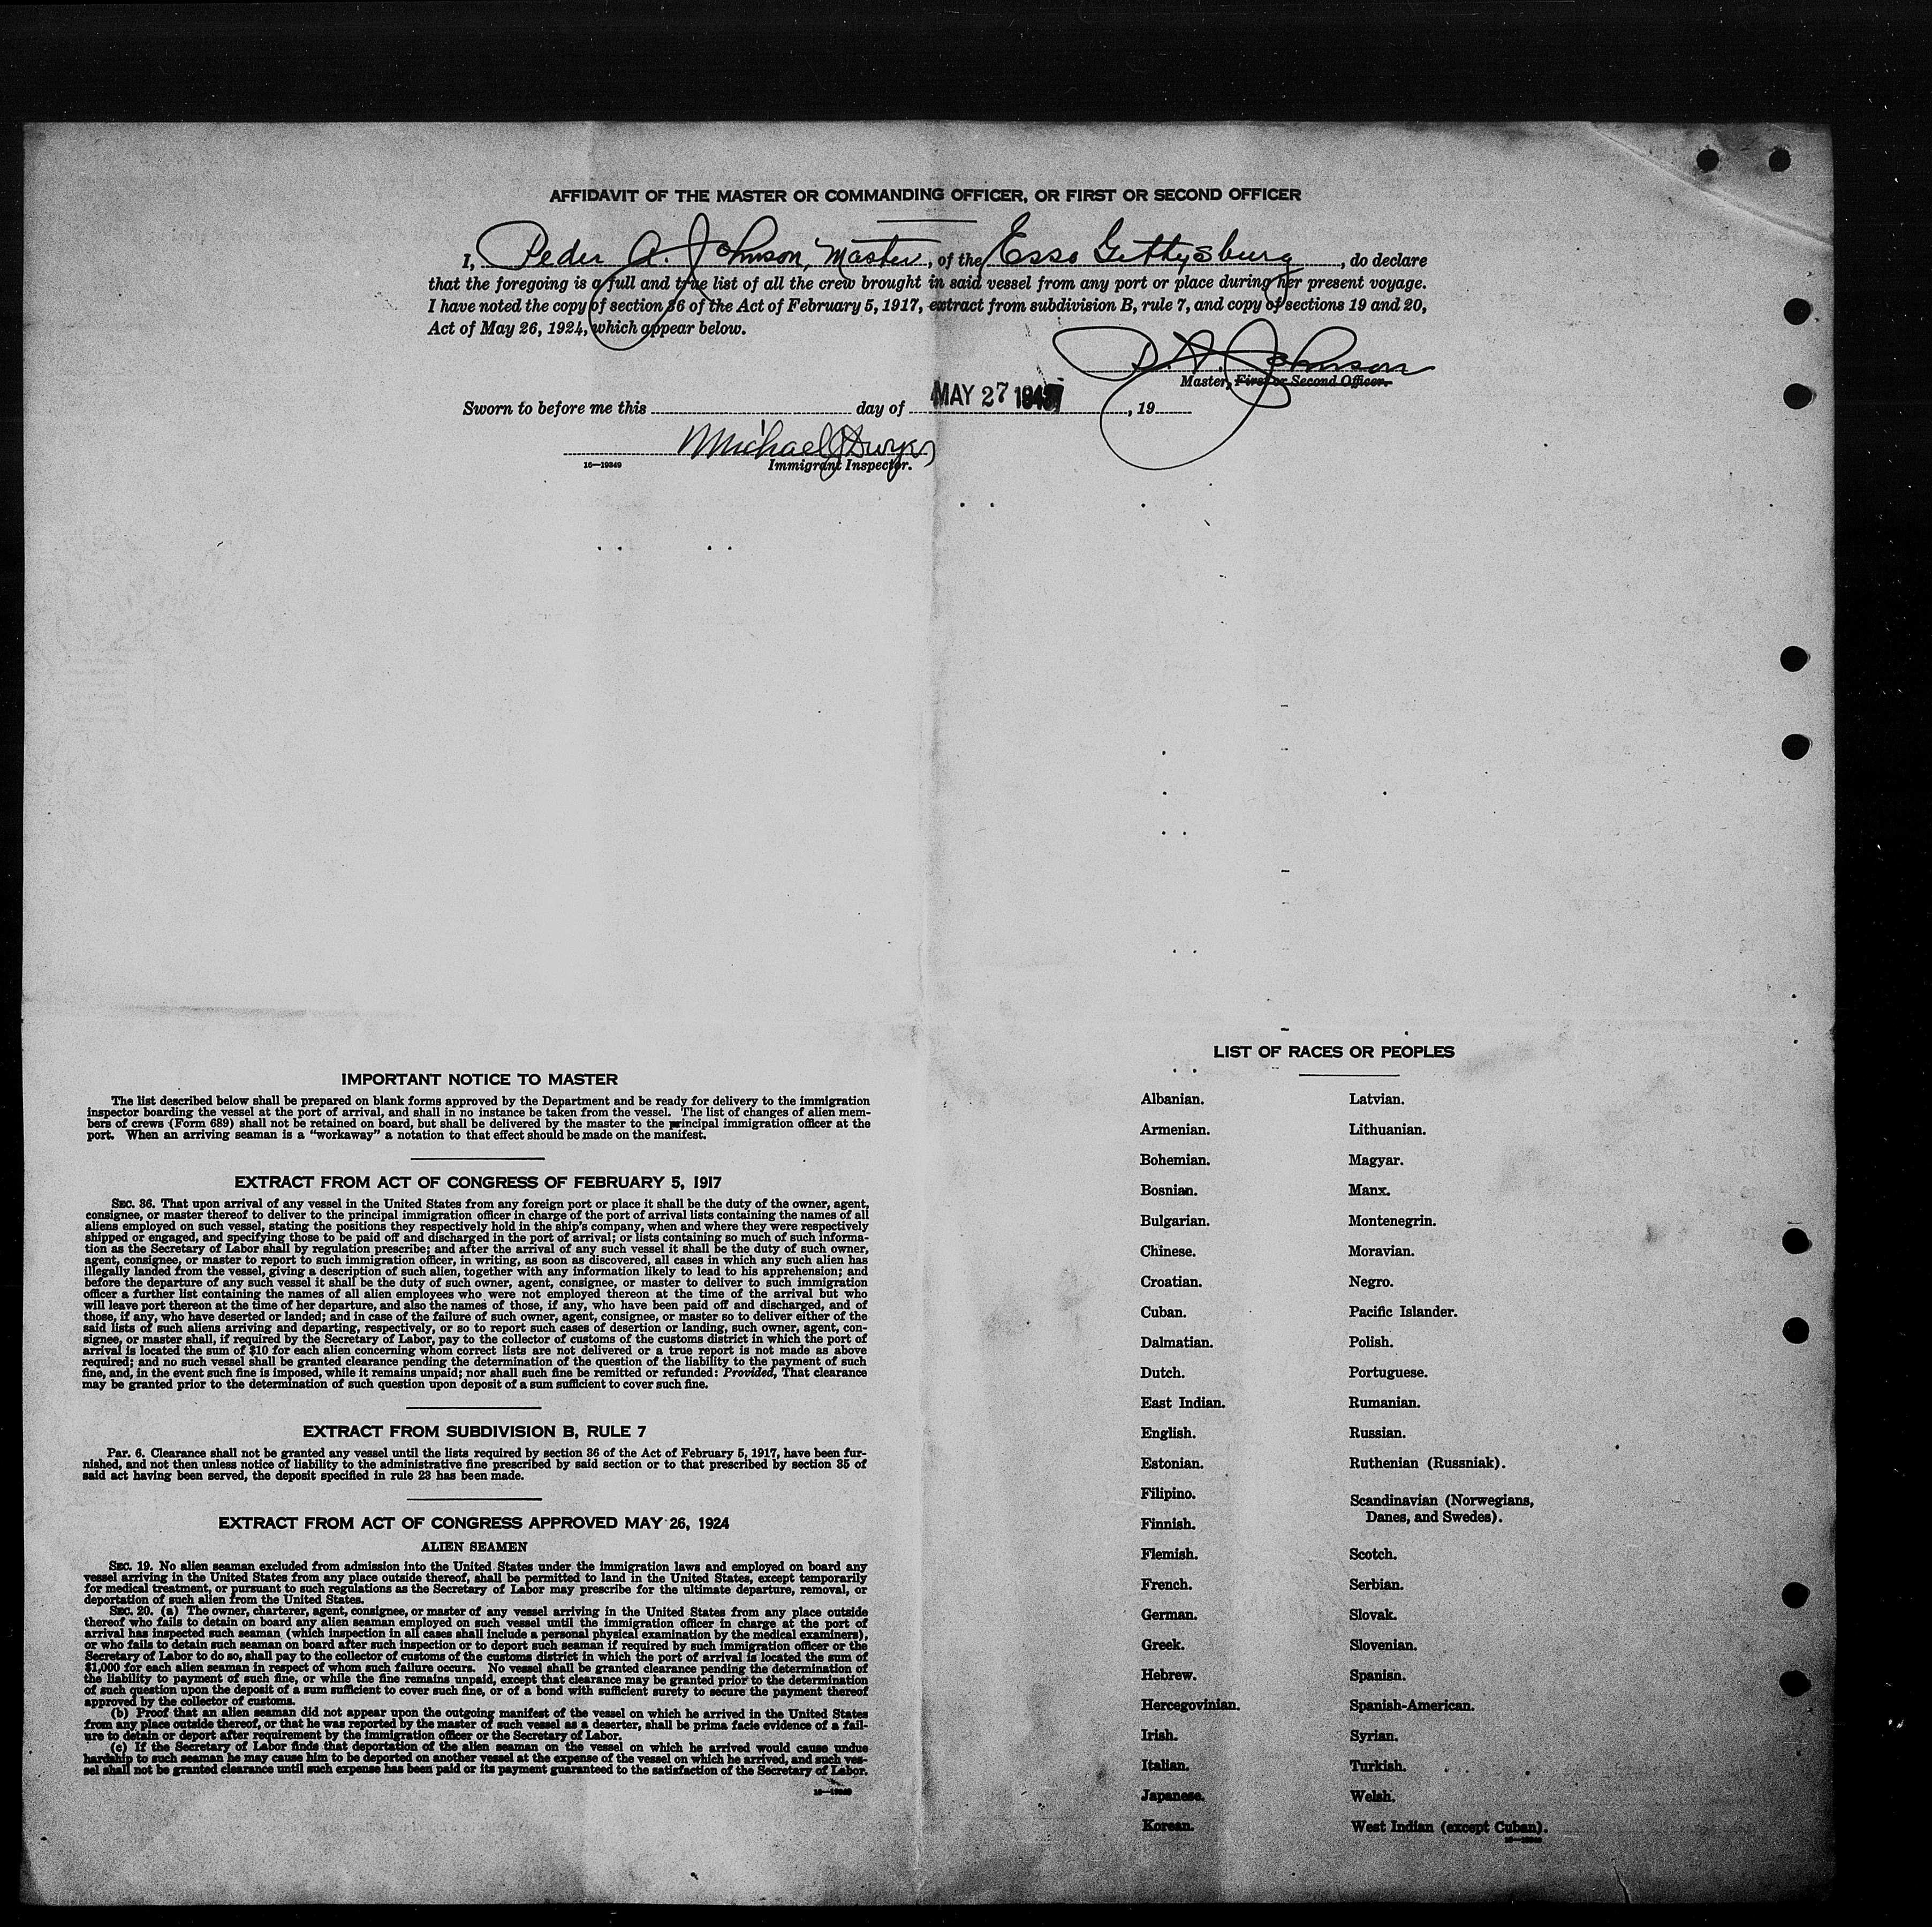 AFFIDAVIT OF THE MASTER OR COMMANDING OFFICER, OR FIRST OR SECOND OFFICER
I, Peder A. Johnson, Master, of the Esso Gettysburg, do declare
that the foregoing is a full and true list of all the crew brought in said vessel from any port or place during her present voyage.
I have noted the copy of section 36 of the Act of February 5, 1917, extract from subdivision B, rule 7, and copy of sections 19 and 20,
Act of May 26, 1924, which appear below.
P. A. Johnson
Master, First or Second Officer.
Sworn to before me this day of MAY 27 , 19
Michael
16—19349 Immigrant Inspector.
IMPORTANT NOTICE TO MASTER
The list described below shall be prepared on blank forms approved by the Department and be ready for delivery to the immigration
inspector boarding the vessel at the port of arrival, and shall in no instance be taken from the vessel. The list of changes of alien mem-
bers of crews (Form 689) shall not be retained on board, but shall be delivered by the master to the principal immigration officer at the
port. When an arriving seaman is a "workaway" a notation to that effect should be made on the manifest.
EXTRACT FROM ACT OF CONGRESS OF FEBRUARY 5, 1917
SEC. 36. That upon arrival of any vessel in the United States from any foreign port or place it shall be the duty of the owner, agent,
consignee, or master thereof to deliver to the principal immigration officer in charge of the port of arrival lists containing the names of all
aliens employed on such vessel, stating the positions they respectively hold in the ship's company, when and where they were respectively
shipped or engaged, and specifying those to be paid off and discharged in the port of arrival; or lists containing so much of such informa-
tion as the Secretary of Labor shall by regulation prescribe; and after the arrival of any such vessel it shall be the duty of such owner,
agent, consignee, or master to report to such immigration officer, in writing, as soon as discovered, all cases in which any such alien has
illegally landed from the vessel, giving a description of such alien, together with any information likely to lead to his apprehension; and
before the departure of any such vessel it shall be the duty of such owner, agent, consignee, or master to deliver to such immigration
officer a further list containing the names of all alien employees who were not employed thereon at the time of the arrival but who
will leave port thereon at the time of her departure, and also the names of those, if any, who have been paid off and discharged, and of
those, if any, who have deserted or landed; and in case of the failure of such owner, agent, consignee, or master so to deliver either of the
said lists of such aliens arriving and departing, respectively, or so to report such cases of desertion or landing, such owner, agent, con-
signee, or master shall, if required by the Secretary of Labor, pay to the collector of customs of the customs district in which the port of
arrival is located the sum of $10 for each alien concerning whom correct lists are not delivered or a true report is not made as above
required; and no such vessel shall be granted clearance pending the determination of the question of the liability to the payment of such
fine, and, in the event such fine is imposed, while it remains unpaid; nor shall such fine be remitted or refunded: Provided, That clearance
may be granted prior to the determination of such question upon deposit of a sum sufficient to cover such fine.
EXTRACT FROM SUBDIVISION B, RULE 7
Par. 6. Clearance shall not be granted any vessel until the lists required by section 36 of the Act of February 5, 1917, have been fur-
nished, and not then unless notice of liability to the administrative fine prescribed by said section or to that prescribed by section 35 of
said act having been served, the deposit specified in rule 23 has been made.
EXTRACT FROM ACT OF CONGRESS APPROVED MAY 26, 1924
ALIEN SEAMEN
SEC. 19. No alien seaman excluded from admission into the United States under the immigration laws and employed on board any
vessel arriving in the United States from any place outside thereof, shall be permitted to land in the United States, except temporarily
for medical treatment, or pursuant to such regulations as the Secretary of Labor may prescribe for the ultimate departure, removal, or
deportation of such alien from the United States.
SEC. 20. (a) The owner, charterer, agent, consignee, or master of any vessel arriving in the United States from any place outside
thereof who fails to detain on board any alien seaman employed on such vessel until the immigration officer in charge at the port of
arrival has inspected such seaman (which inspection in all cases shall include a personal physical examination by the medical examiners),
or who fails to detain such seaman on board after such inspection or to deport such seaman if required by such immigration officer or the
Secretary of Labor to do so, shall pay to the collector of customs of the customs district in which the port of arrival is located the sum of
$1,000 for each alien seaman in respect of whom such failure occurs. No vessel shall be granted clearance pending the determination of
the liability to payment of such fine, or while the fine remains unpaid, except that clearance may be granted prior to the determination
of such question upon the deposit of a sum sufficient to cover such fine, or of a bond with sufficient surety to secure the payment thereof
approved by the collector of customs.
(b) Proof that an alien seaman did not appear upon the outgoing manifest of the vessel on which he arrived in the United States
from any place outside thereof, or that he was reported by the master of such vessel as a deserter, shall be prima facie evidence of a fail-
ure to detain or deport after requirement by the immigration officer or the Secretary of Labor.
(c) If the Secretary of Labor finds that deportation of the alien seaman on the vessel on which he arrived would cause undue
hardship to such seaman he may cause him to be deported on another vessel at the expense of the vessel on which he arrived, and such ves-
sel shall not be granted clearance until such expense has been paid or its payment guaranteed to the satisfaction of the Secretary of Labor.
16—19349
LIST OF RACES OR PEOPLES
Albanian.
Armenian.
Bohemian.
Bosnian.
Bulgarian.
Chinese.
Croatian.
Cuban.
Dalmatian.
Dutch.
East Indian.
English.
Estonian.
Filipino.
Finnish.
Flemish.
French.
German.
Greek.
Hebrew.
Hercegovinian.
Irish.
Italian.
Japanese.
Korean.
Latvian.
Lithuanian.
Magyar.
Manx.
Montenegrin.
Moravian.
Negro.
Pacific Islander.
Polish.
Portuguese.
Rumanian.
Russian.
Ruthenian (Russniak).
Scandinavian (Norwegians,
Danes, and Swedes).
Scotch.
Serbian.
Slovak.
Slovenian.
Spanish.
Spanish-American.
Syrian.
Turkish.
Welsh.
West Indian (except Cuban).
16—19349